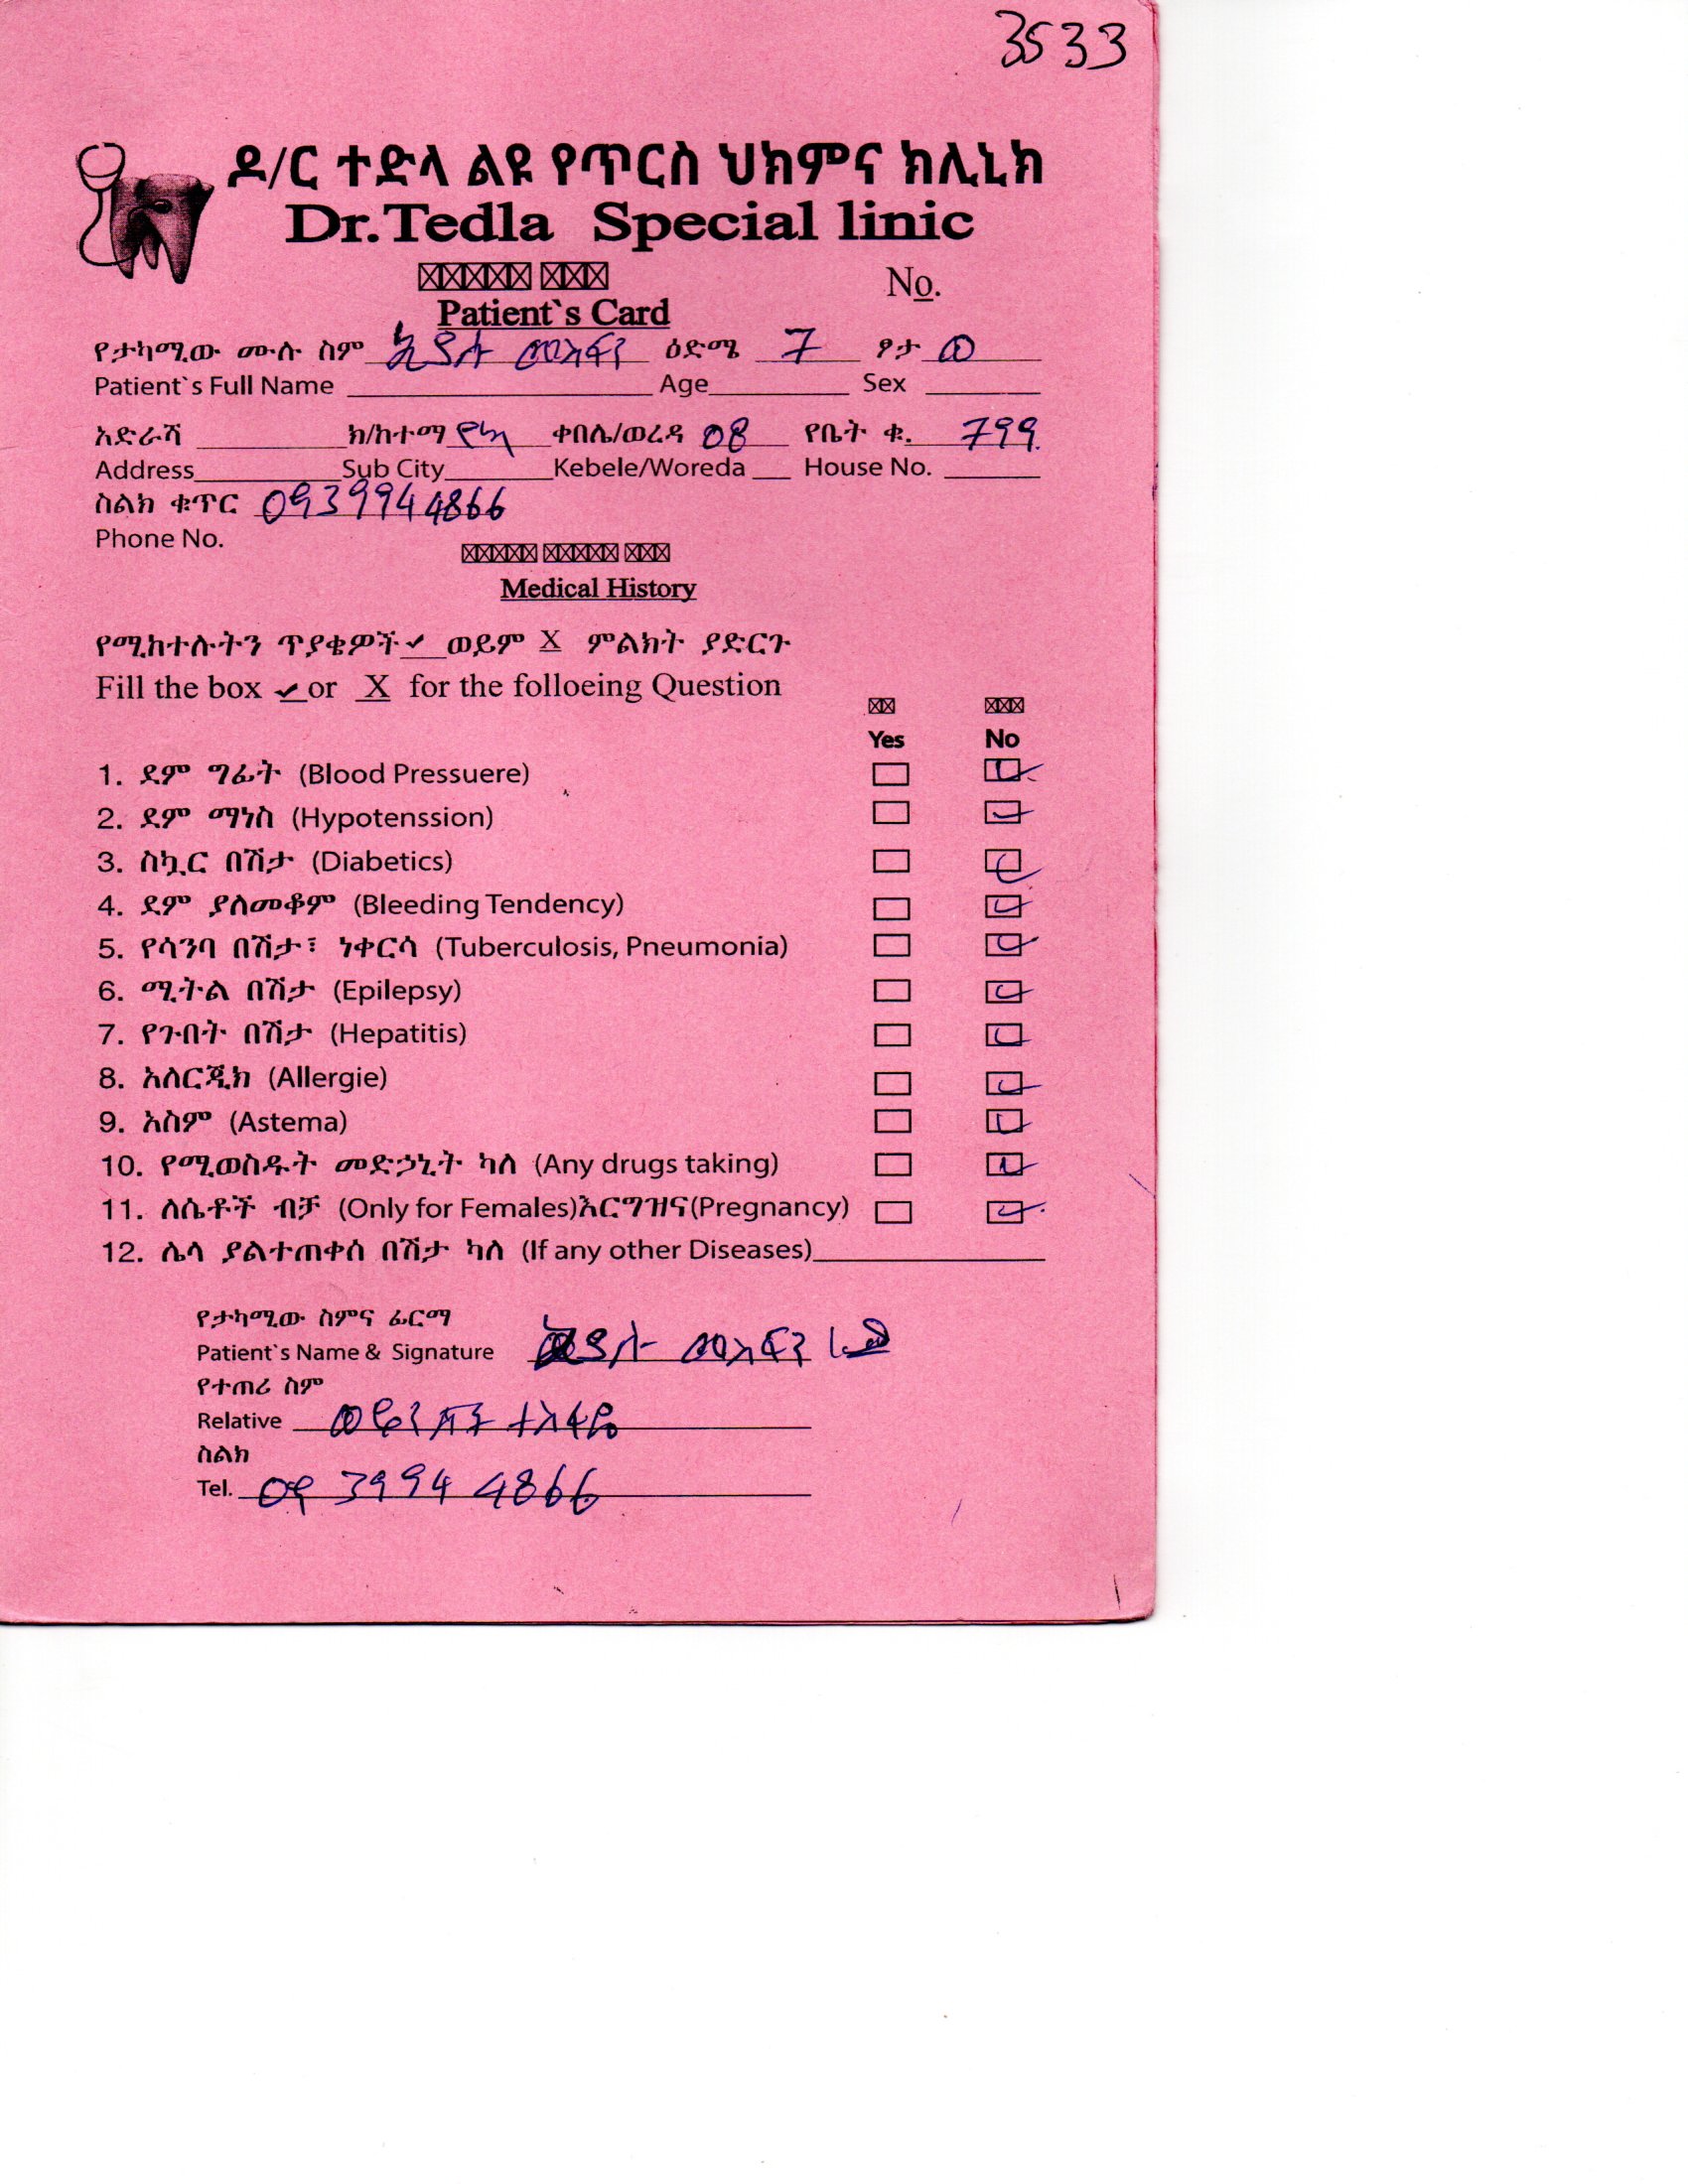 3533
ዶ/ር ተድላ ልዩ የጥርስ ህክምና ክሊኒክ
Dr.Tedla Special linic
No.
Patient`s Card
የታካሚው ሙሉ ስም ኢዮሱ መስፍን ዕድሜ 7 ፆታ ወ
Patient`s Full Name Age Sex
አድራሻ ክ/ከተማ የካ ቀበሌ/ወረዳ 08 የቤት ቁ. 799
Address Sub City Kebele/Woreda House No.
ስልክ ቁጥር 0939944866
Phone No.
Medical History
የሚከተሉትን ጥያቄዎች ✓ ወይም X ምልክት ያድርጉ
Fill the box ✓ or X for the folloeing Question
Yes No
1. ደም ግፊት (Blood Pressuere)
2. ደም ማነስ (Hypotenssion)
3. ስኳር በሽታ (Diabetics)
4. ደም ያለመቆም (Bleeding Tendency)
5. የሳንባ በሽታ፣ ነቀርሳ (Tuberculosis, Pneumonia)
6. ሚትል በሽታ (Epilepsy)
7. የጉበት በሽታ (Hepatitis)
8. አለርጂክ (Allergie)
9. አስም (Astema)
10. የሚወስዱት መድኃኒት ካለ (Any drugs taking)
11. ለሴቶች ብቻ (Only for Females)እርግዝና(Pregnancy)
12. ሌላ ያልተጠቀሰ በሽታ ካለ (If any other Diseases)
የታካሚው ስምና ፊርማ
Patient`s Name & Signature መስፍን
የተጠሪ ስም
Relative ተስፋዬ
ስልክ
Tel. 09 3994 4866